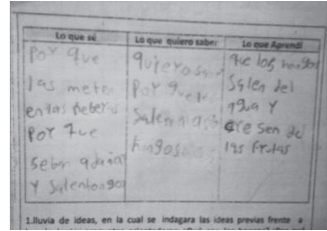 Lo que sé
Lo que quiero saber
Lo que Aprendí
Por que
las meten
en las neberas
Por que
seben adañar
y salen longos
quiero saber
Por que les
salen
hongos
que los hongos
salen del
agua y
cresen de
las frutas
1.lluvia de ideas, en la cual se indagara las ideas previas frente a